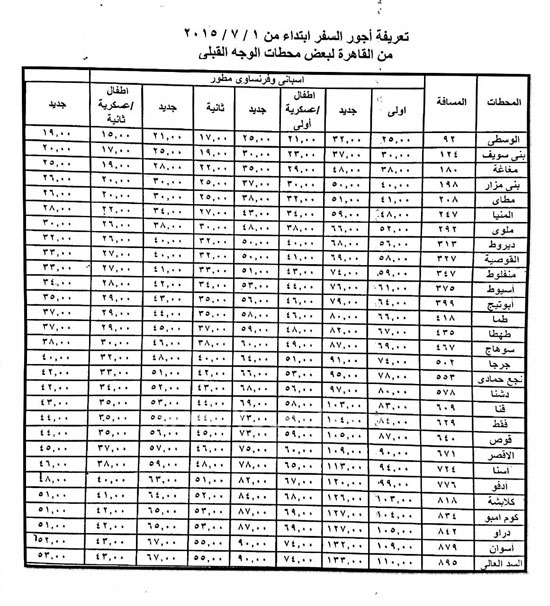 تعريفة أجور السفر ابتداء من ١ / ٧ / ٢٠١٥
من القاهرة لبعض محطات الوجه القبلى
اسبانى وفرنساوى مطور
المحطات المسافة اولى جديد اطفال /عسكرية أولى جديد ثانية جديد اطفال /عسكرية ثانية جديد
الوسطى ٩٢ ٢٥,٠٠ ٣٢,٠٠ ٢١,٠٠ ٢٥,٠٠ ١٧,٠٠ ٢١,٠٠ ١٥,٠٠ ١٩,٠٠
بنى سويف ١٢٤ ٣٠,٠٠ ٣٧,٠٠ ٢٣,٠٠ ٣٠,٠٠ ٢٠,٠٠ ٢٥,٠٠ ١٧,٠٠ ٢٠,٠٠
مغاغة ١٨٠ ٣٨,٠٠ ٤٨,٠٠ ٢٩,٠٠ ٣٥,٠٠ ٢٢,٠٠ ٢٨,٠٠ ١٩,٠٠ ٢٥,٠٠
بنى مزار ١٩٨ ٤٠,٠٠ ٥٠,٠٠ ٣٠,٠٠ ٣٧,٠٠ ٢٥,٠٠ ٣٠,٠٠ ٢٠,٠٠ ٢٦,٠٠
مطاى ٢٠٨ ٤١,٠٠ ٥١,٠٠ ٣٢,٠٠ ٣٨,٠٠ ٢٥,٠٠ ٣٢,٠٠ ٢٠,٠٠ ٢٦,٠٠
المنيا ٢٤٧ ٤٨,٠٠ ٥٩,٠٠ ٣٤,٠٠ ٤٣,٠٠ ٢٧,٠٠ ٣٤,٠٠ ٢٢,٠٠ ٢٨,٠٠
ملوى ٢٩٢ ٥٢,٠٠ ٦٦,٠٠ ٣٨,٠٠ ٤٨,٠٠ ٣٠,٠٠ ٣٨,٠٠ ٢٦,٠٠ ٣٠,٠٠
ديروط ٣١٣ ٥٦,٠٠ ٦٨,٠٠ ٤٠,٠٠ ٥٠,٠٠ ٣٢,٠٠ ٤٠,٠٠ ٢٦,٠٠ ٣٢,٠٠
القوصية ٣٢٧ ٥٨,٠٠ ٦٩,٠٠ ٤١,٠٠ ٥٠,٠٠ ٣٢,٠٠ ٤٠,٠٠ ٢٧,٠٠ ٣٣,٠٠
منفلوط ٣٤٧ ٥٩,٠٠ ٧٤,٠٠ ٤٣,٠٠ ٥١,٠٠ ٣٣,٠٠ ٤١,٠٠ ٢٧,٠٠ ٣٣,٠٠
اسيوط ٣٧٥ ٦١,٠٠ ٧٦,٠٠ ٤٤,٠٠ ٥٣,٠٠ ٣٤,٠٠ ٤٢,٠٠ ٢٨,٠٠ ٣٤,٠٠
ابوتيج ٣٩٩ ٦٤,٠٠ ٧٩,٠٠ ٤٦,٠٠ ٥٦,٠٠ ٣٥,٠٠ ٤٣,٠٠ ٢٩,٠٠ ٣٥,٠٠
طما ٤١٨ ٦٦,٠٠ ٨٠,٠٠ ٤٦,٠٠ ٥٨,٠٠ ٣٥,٠٠ ٤٤,٠٠ ٢٩,٠٠ ٣٧,٠٠
طهطا ٤٣٥ ٦٧,٠٠ ٨٢,٠٠ ٤٨,٠٠ ٥٩,٠٠ ٣٧,٠٠ ٤٥,٠٠ ٢٩,٠٠ ٣٧,٠٠
سوهاج ٤٦٧ ٦٩,٠٠ ٨٧,٠٠ ٤٩,٠٠ ٦٠,٠٠ ٣٨,٠٠ ٤٦,٠٠ ٣٠,٠٠ ٣٨,٠٠
جرجا ٥٠٢ ٧٤,٠٠ ٩١,٠٠ ٥١,٠٠ ٦٤,٠٠ ٤٠,٠٠ ٤٨,٠٠ ٣٢,٠٠ ٤٠,٠٠
نجع حمادى ٥٥٣ ٧٨,٠٠ ٩٥,٠٠ ٥٣,٠٠ ٦٦,٠٠ ٤٢,٠٠ ٥١,٠٠ ٣٣,٠٠ ٤٢,٠٠
دشنا ٥٧٨ ٨٠,٠٠ ٩٧,٠٠ ٥٦,٠٠ ٦٨,٠٠ ٤٣,٠٠ ٥٢,٠٠ ٣٤,٠٠ ٤٢,٠٠
قنا ٦٠٩ ٨٣,٠٠ ١٠٣,٠٠ ٥٨,٠٠ ٦٩,٠٠ ٤٤,٠٠ ٥٣,٠٠ ٣٥,٠٠ ٤٣,٠٠
فقط ٦٢٩ ٨٤,٠٠ ١٠٤,٠٠ ٥٩,٠٠ ٧٣,٠٠ ٤٤,٠٠ ٥٥,٠٠ ٣٥,٠٠ ٤٤,٠٠
قوص ٦٤٠ ٨٧,٠٠ ١٠٥,٠٠ ٥٩,٠٠ ٧٣,٠٠ ٤٥,٠٠ ٥٦,٠٠ ٣٥,٠٠ ٤٤,٠٠
الاقصر ٦٧١ ٩٠,٠٠ ١٠٩,٠٠ ٦٠,٠٠ ٧٥,٠٠ ٤٦,٠٠ ٥٧,٠٠ ٣٧,٠٠ ٤٥,٠٠
اسنا ٧٢٤ ٩٤,٠٠ ١١٣,٠٠ ٦٥,٠٠ ٧٨,٠٠ ٤٨,٠٠ ٥٩,٠٠ ٣٨,٠٠ ٤٦,٠٠
ادفو ٧٧٦ ٩٩,٠٠ ١٢٠,٠٠ ٦٧,٠٠ ٨٢,٠٠ ٥١,٠٠ ٦٣,٠٠ ٤٠,٠٠ ٤٨,٠٠
كلابشة ٨١٨ ١٠٣,٠٠ ١٢٦,٠٠ ٦٨,٠٠ ٨٤,٠٠ ٥٢,٠٠ ٦٤,٠٠ ٤١,٠٠ ٥١,٠٠
كوم امبو ٨٣٤ ١٠٤,٠٠ ١٢٧,٠٠ ٦٩,٠٠ ٨٧,٠٠ ٥٣,٠٠ ٦٥,٠٠ ٤٢,٠٠ ٥١,٠٠
دراو ٨٤٢ ١٠٥,٠٠ ١٢٧,٠٠ ٦٩,٠٠ ٨٧,٠٠ ٥٣,٠٠ ٦٥,٠٠ ٤٢,٠٠ ٥١,٠٠
اسوان ٨٧٩ ١٠٩,٠٠ ١٣٢,٠٠ ٧٤,٠٠ ٩٠,٠٠ ٥٥,٠٠ ٦٧,٠٠ ٤٣,٠٠ ٥٢,٠٠
السد العالى ٨٩٥ ١١٠,٠٠ ١٣٣,٠٠ ٧٤,٠٠ ٩٠,٠٠ ٥٥,٠٠ ٦٧,٠٠ ٤٣,٠٠ ٥٣,٠٠